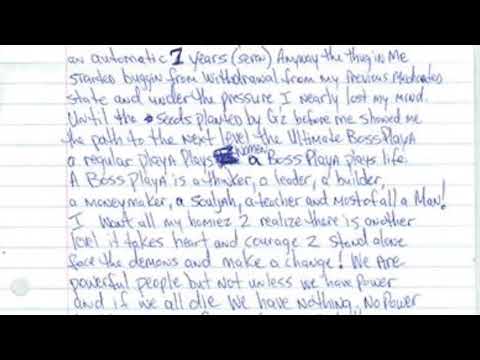 an automatic 7 years (seven) Anyway the thug in Me
started buggin from withdrawal from my previous Meditated
state and under the pressure I nearly lost my mind.
Until the seeds planted by G'z before me showed me
the path to the next level the Ultimate Boss Playa
a regular playa plays women a Boss Playa plays life.
A Boss Playa is a thinker, a leader, a builder,
a moneymaker, a souljah, a teacher and most of all a Man!
I want all my homiez 2 realize there is another
level it takes heart and courage 2 stand alone
face the demons and make a change! We are
powerful people but not unless we have power
and if we all die we have nothing, No Power